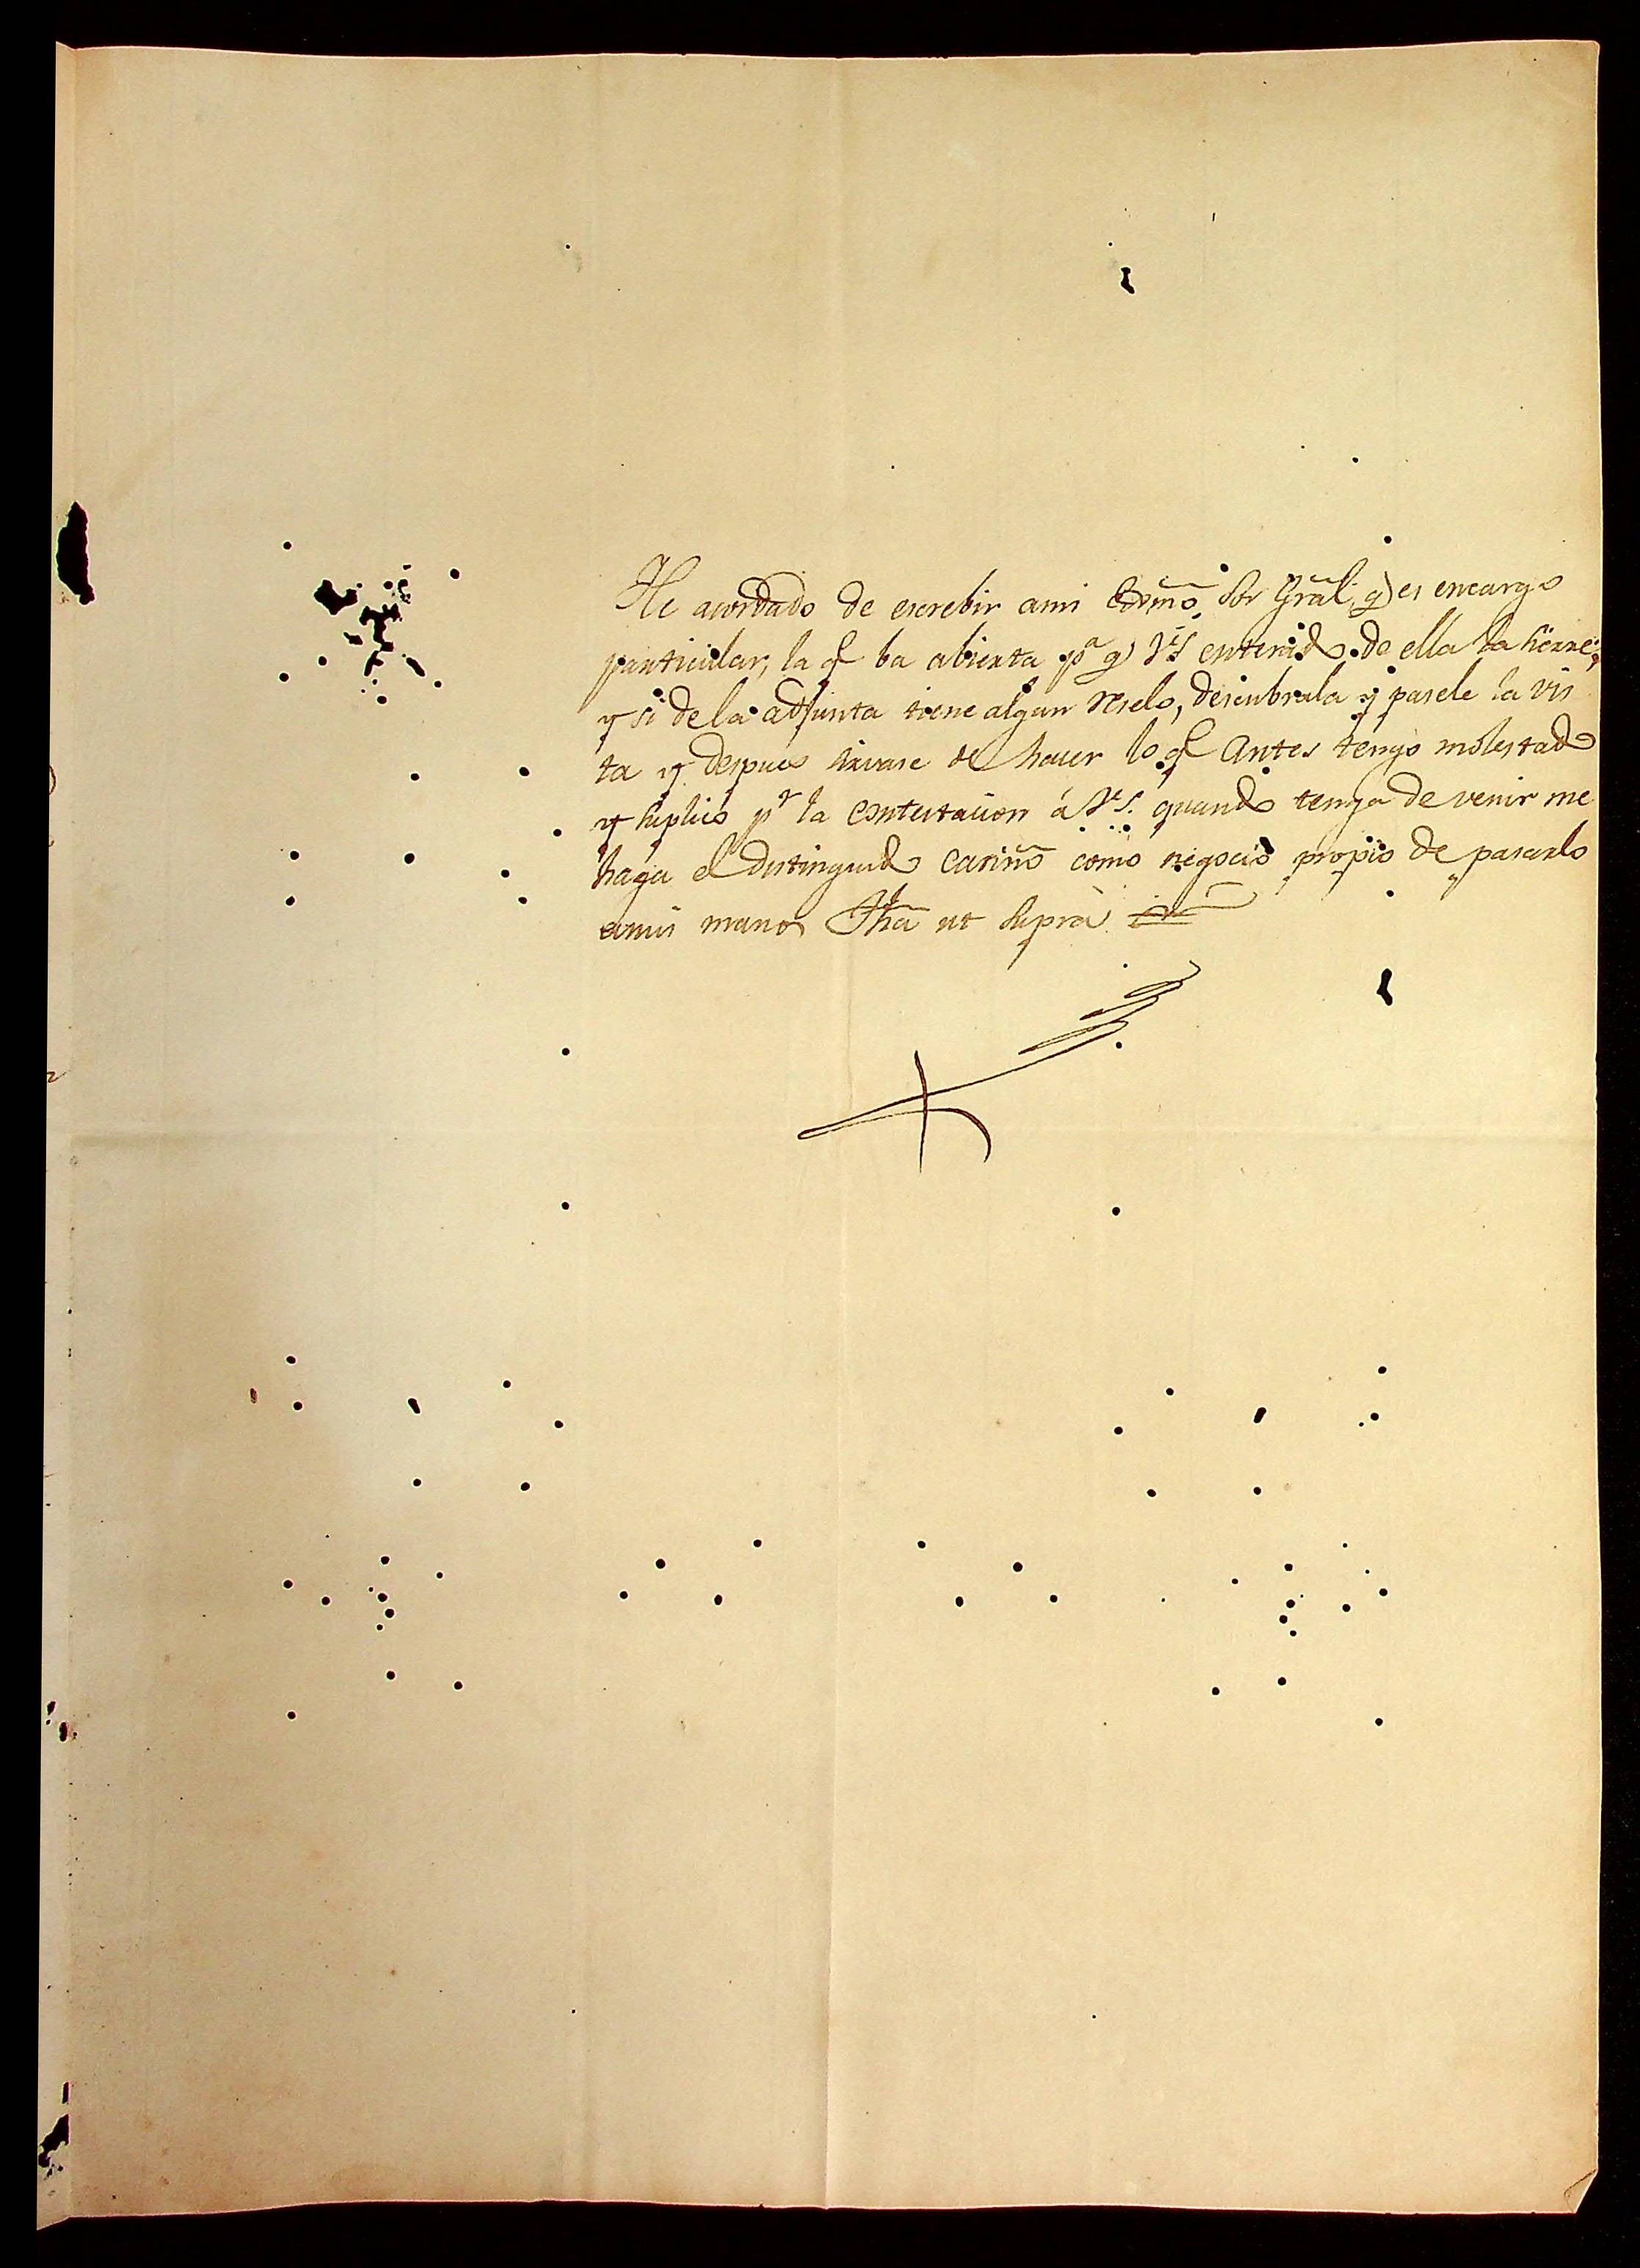 He acordado de escrebir ami Exmõ Sor Grãl, q es encargo
particular, la q ba abierta pª q V.S enterado de ella la sierre;
y si de la adjunta tiene algun reselo, descubrala y pasele la vis
ta y despues sirvase de hacer lo q antes tengo molestado
y suplico pr la contestacion á V.S. quando tenga de venir me
haga el distinguido cariño como negocio propio de pasarlo
amis manos Fhã ut supra